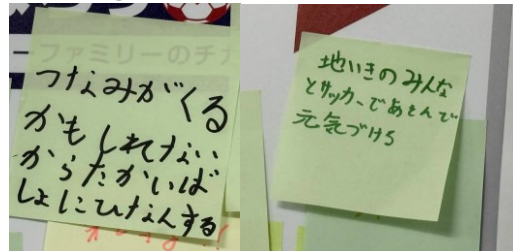 ーファミリーのチカ
つなみがくる
かもしれない
からたかいば
しょにひなんする
地いきのみんな
とサッカーであそんで
元気づける